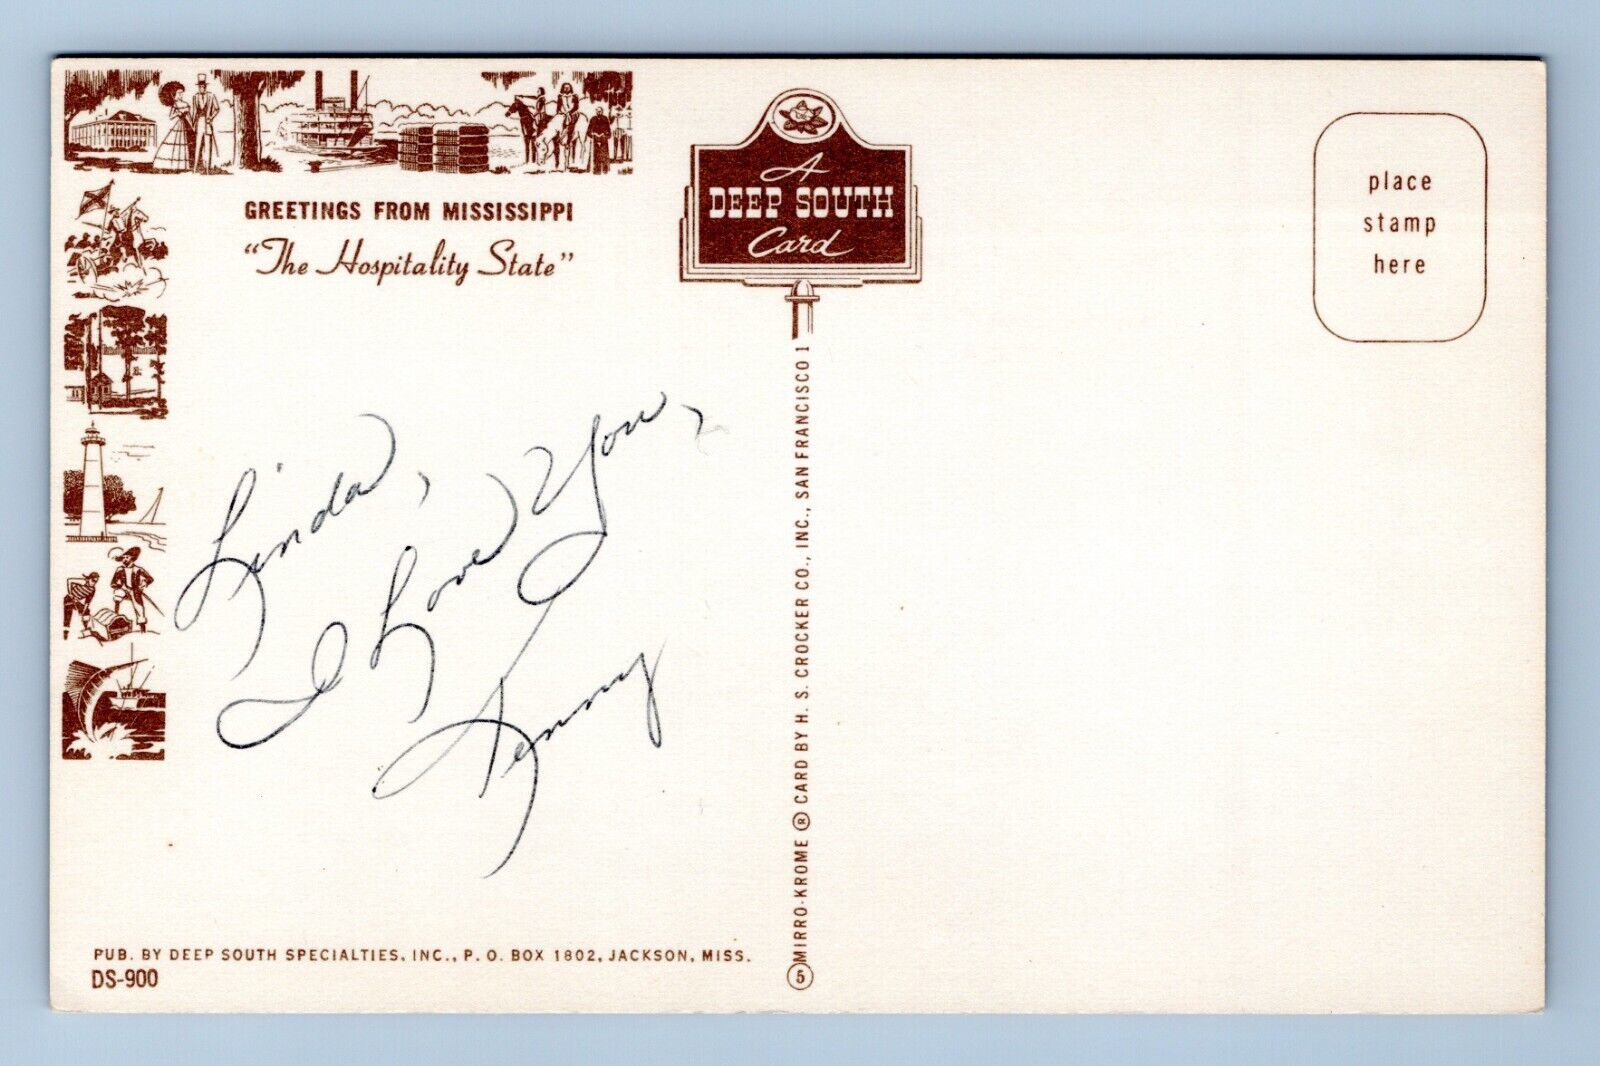 GREETINGS FROM MISSISSIPPI
"The Hospitality State"
A
DEEP SOUTH
Card
place
stamp
here
Linda,
I Love You,
Kenny
PUB. BY DEEP SOUTH SPECIALTIES, INC., P. O. BOX 1802, JACKSON, MISS.
DS-900
5 MIRRO-KROME ® CARD BY H. S. CROCKER CO., INC., SAN FRANCISCO 1